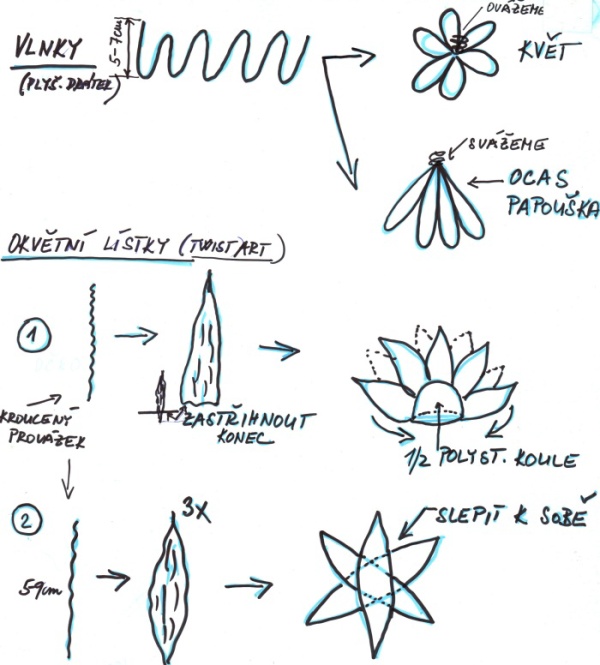 VLNKY
(PLYŠ. DRÁTEK)
5-7cm
OVÁŽEME
KVĚT
SVÁŽEME
OCAS
PAPOUŠKA
OKVĚTNÍ LÍSTKY (TWISTART)
1
KROUCENÝ
PROVÁZEK
ZASTŘIHNOUT
KONEC
1/2 POLYST. KOULE
2
59cm
3x
SLEPIT K SOBĚ